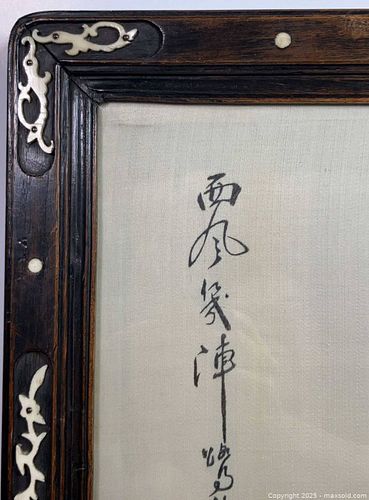 西風幾陣
Copyright 2025 - maxsold.com